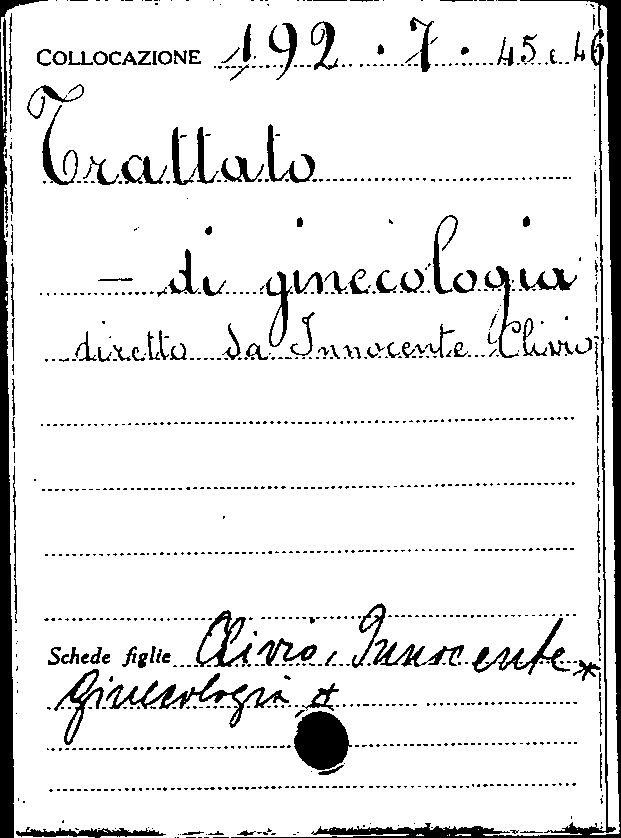 COLLOCAZIONE 192.7.45 e 46
Trattato
— di ginecologia
diretto da Innocente Clivio
Schede figlie Clivio, Innocente *
Ginecologia *